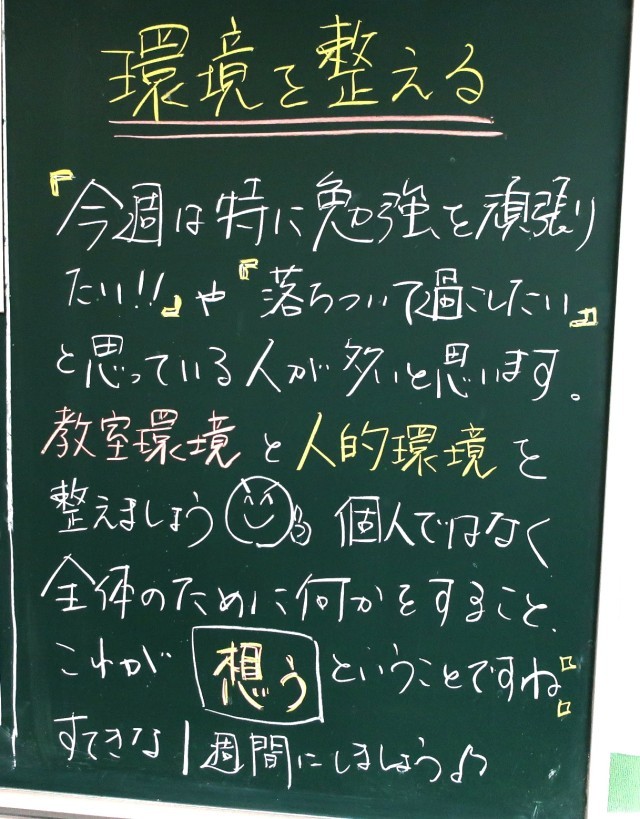 環境を整える
『今週は特に勉強を頑張り
たい!!』や『落ちついて過ごしたい』
と思っている人が多いと思います。
教室環境と人的環境を
整えましょう 個人ではなく
全体のために何かをすること、
これが 想う ということですね。
すてきな1週間にしましょう♪